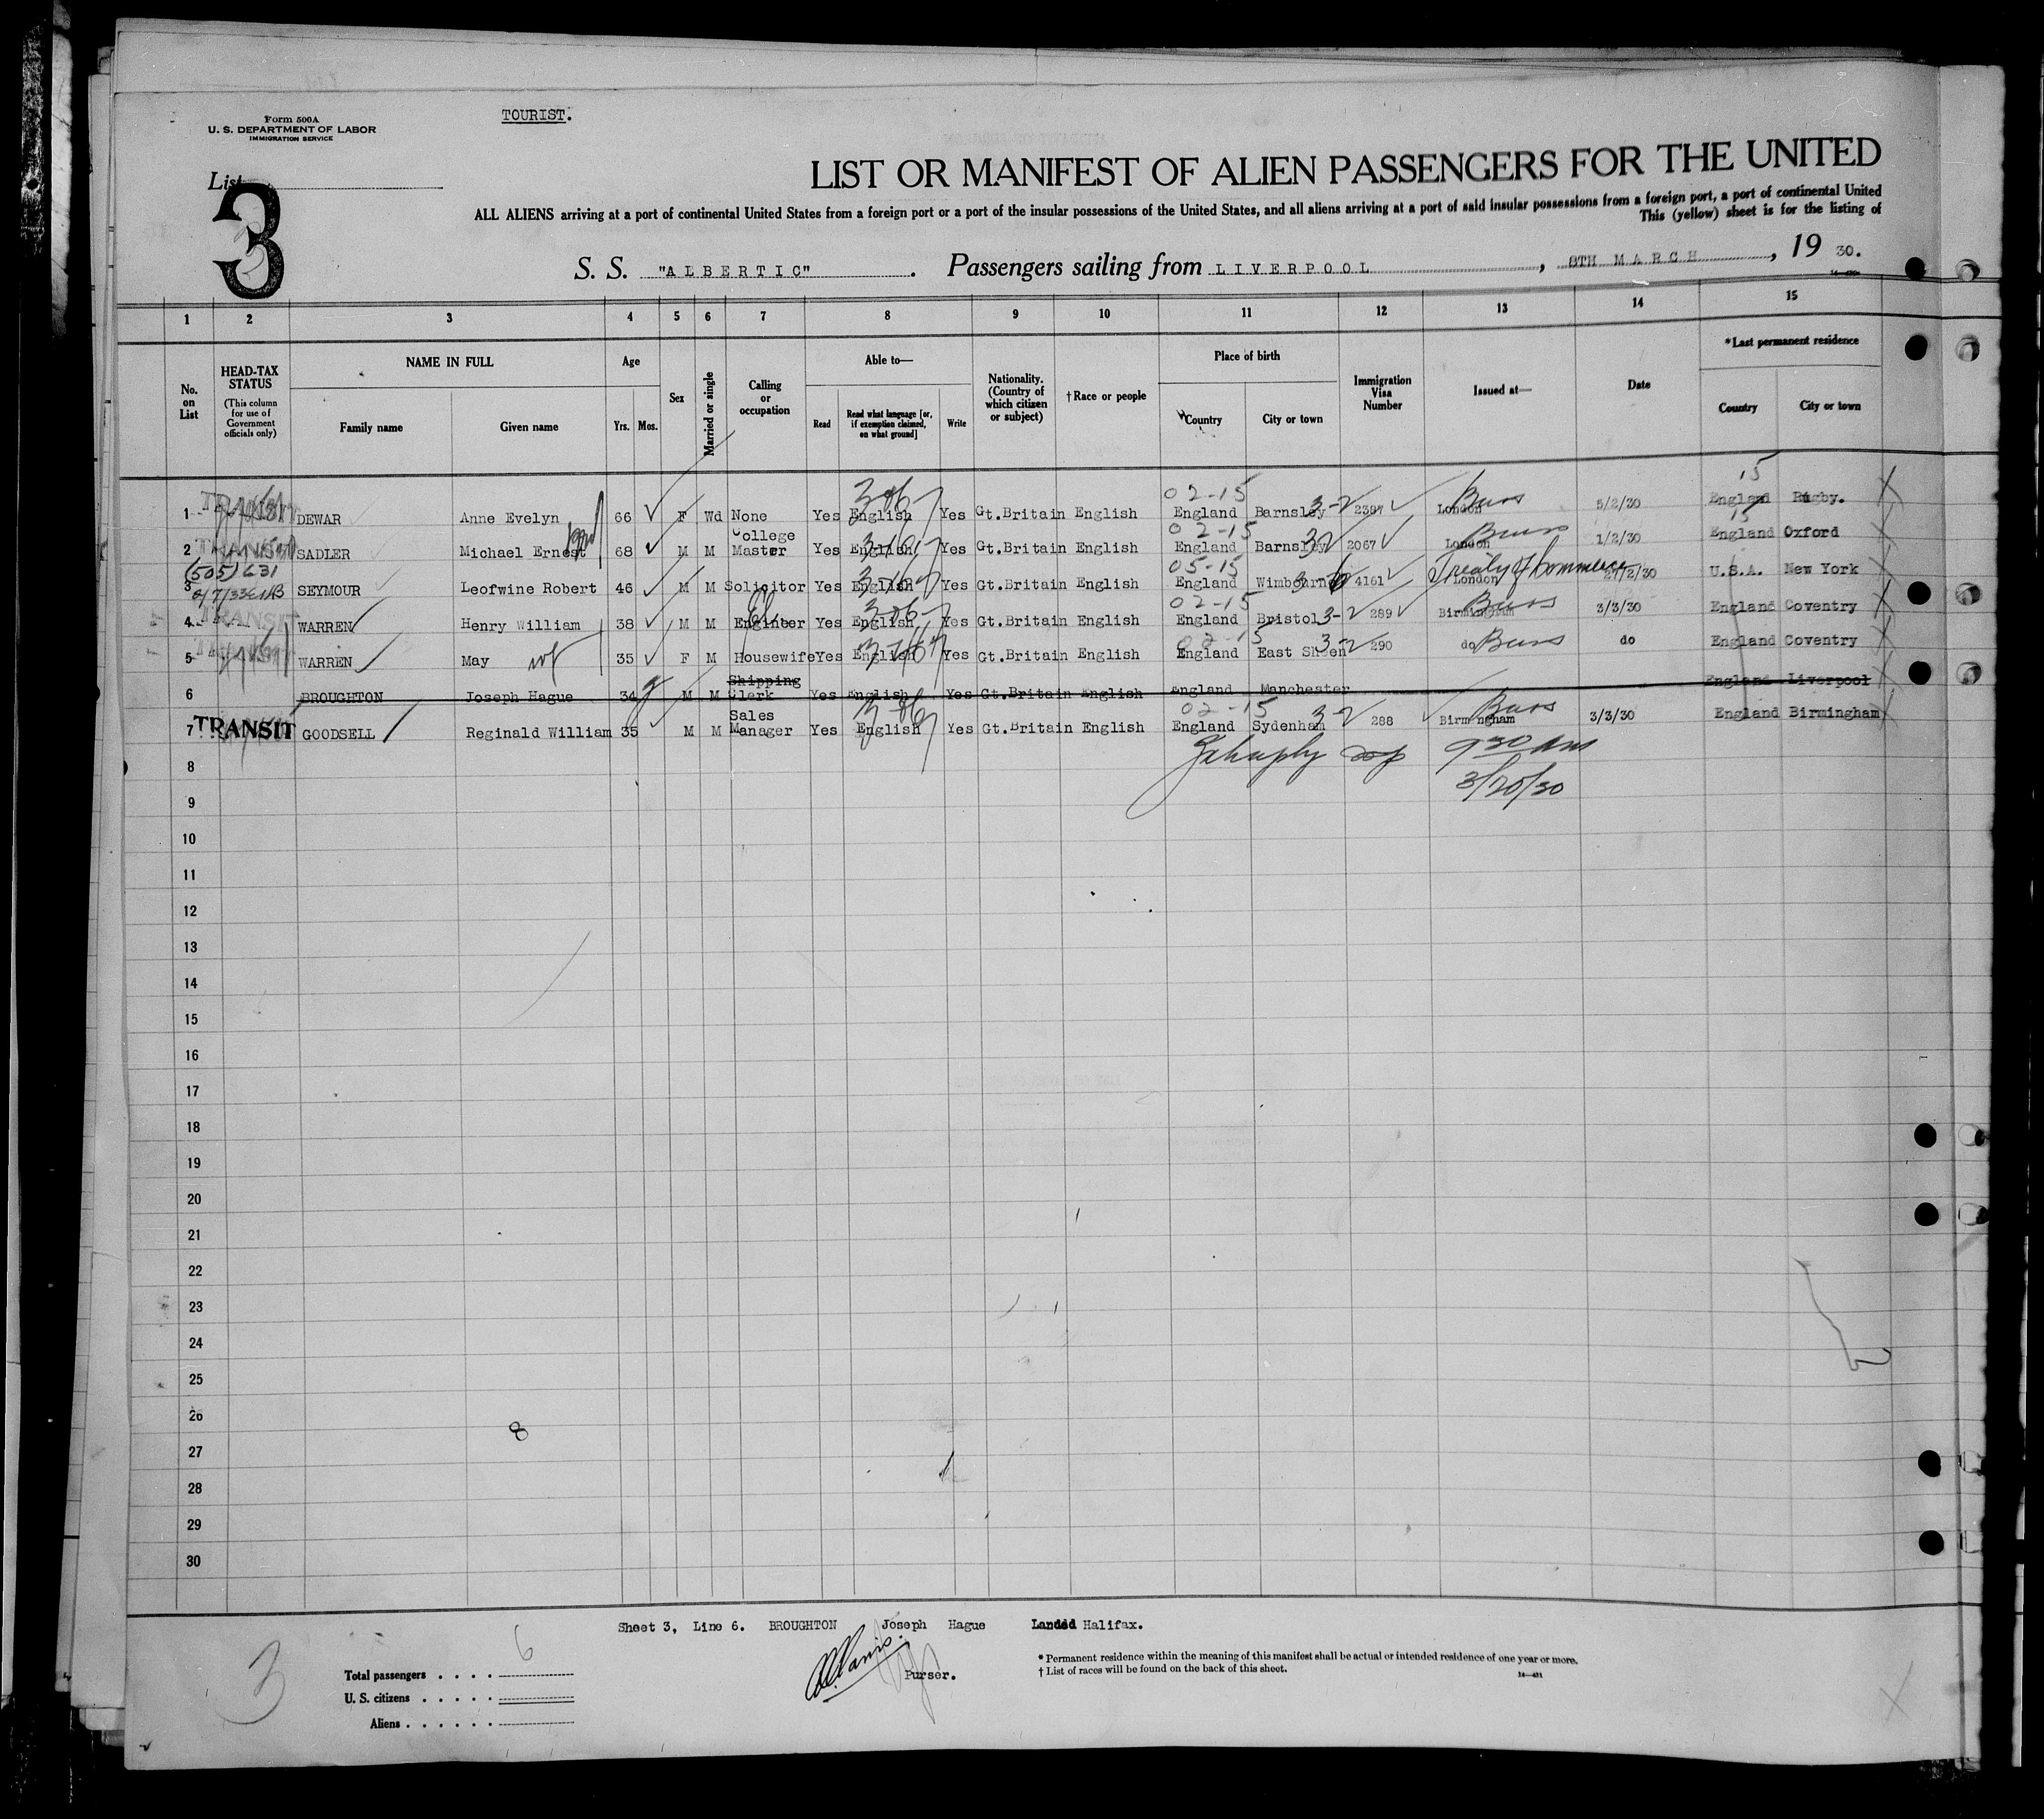 TOURIST.
Form 500A
U. S. DEPARTMENT OF LABOR
IMMIGRATION SERVICE
List
3
LIST OR MANIFEST OF ALIEN PASSENGERS FOR THE UNITED
ALL ALIENS arriving at a port of continental United States from a foreign port or a port of the insular possessions of the United States, and all aliens arriving at a port of said insular possessions from a foreign port, a port of continental United
This (yellow) sheet is for the listing of
S. S. "ALBERTIC" . Passengers sailing from LIVERPOOL , 8TH MARCH , 19 30.
1 2 3 4 5 6 7 8 9 10 11 12 13 14 15
No. on List
HEAD-TAX STATUS (This column for use of Government officials only)
NAME IN FULL
Family name Given name
Age
Yrs. Mos.
Sex
Married or single
Calling or occupation
Able to—
Read Read what language [or, if exemption claimed, on what ground] Write
Nationality. (Country of which citizen or subject)
†Race or people
Place of birth
Country City or town
Immigration Visa Number
Issued at—
Date
*Last permanent residence
Country City or town
02-15 15
1 TRANSIT DEWAR Anne Evelyn 66 F Wd None Yes English Yes Gt.Britain English England Barnsley 3-2 2387 London 5/2/30 England Rugby.
02-15 15
2 TRANSIT SADLER Michael Ernest 68 M M College Master Yes English Yes Gt.Britain English England Barnsley 2067 London 1/2/30 England Oxford
(505) 631 05-15 Treaty of Commerce
3 SEYMOUR Leofwine Robert 46 M M Solicitor Yes English Yes Gt.Britain English England 4161 London /2/30 U.S.A. New York
02-15
4 TRANSIT WARREN Henry William 38 M M Yes English Yes Gt.Britain English England Bristol 3-2 289 Birmingham 3/3/30 England Coventry
02-15
5 TRANSIT WARREN May 35 F M Housewife Yes English Yes Gt.Britain English England East Sheen 3-2 290 do do England Coventry
6 BROUGHTON Joseph Hague 34 M M Shipping Clerk Yes English Yes Gt.Britain English England Manchester England Liverpool
02-15
7 TRANSIT GOODSELL Reginald William 35 M M Sales Manager Yes English Yes Gt.Britain English England Sydenham 3-2 288 Birmingham 3/3/30 England Birmingham
9 30 am
8
3/20/30
9
10
11
12
13
14
15
16
17
18
19
20
21
22
23
24
25
26
8
27
28
29
30
Sheet 3, Line 6. BROUGHTON Joseph Hague Landed Halifax.
3
Total passengers . . . . 6
U. S. citizens . . . . .
Aliens . . . . . .
Purser.
* Permanent residence within the meaning of this manifest shall be actual or intended residence of one year or more.
† List of races will be found on the back of this sheet.